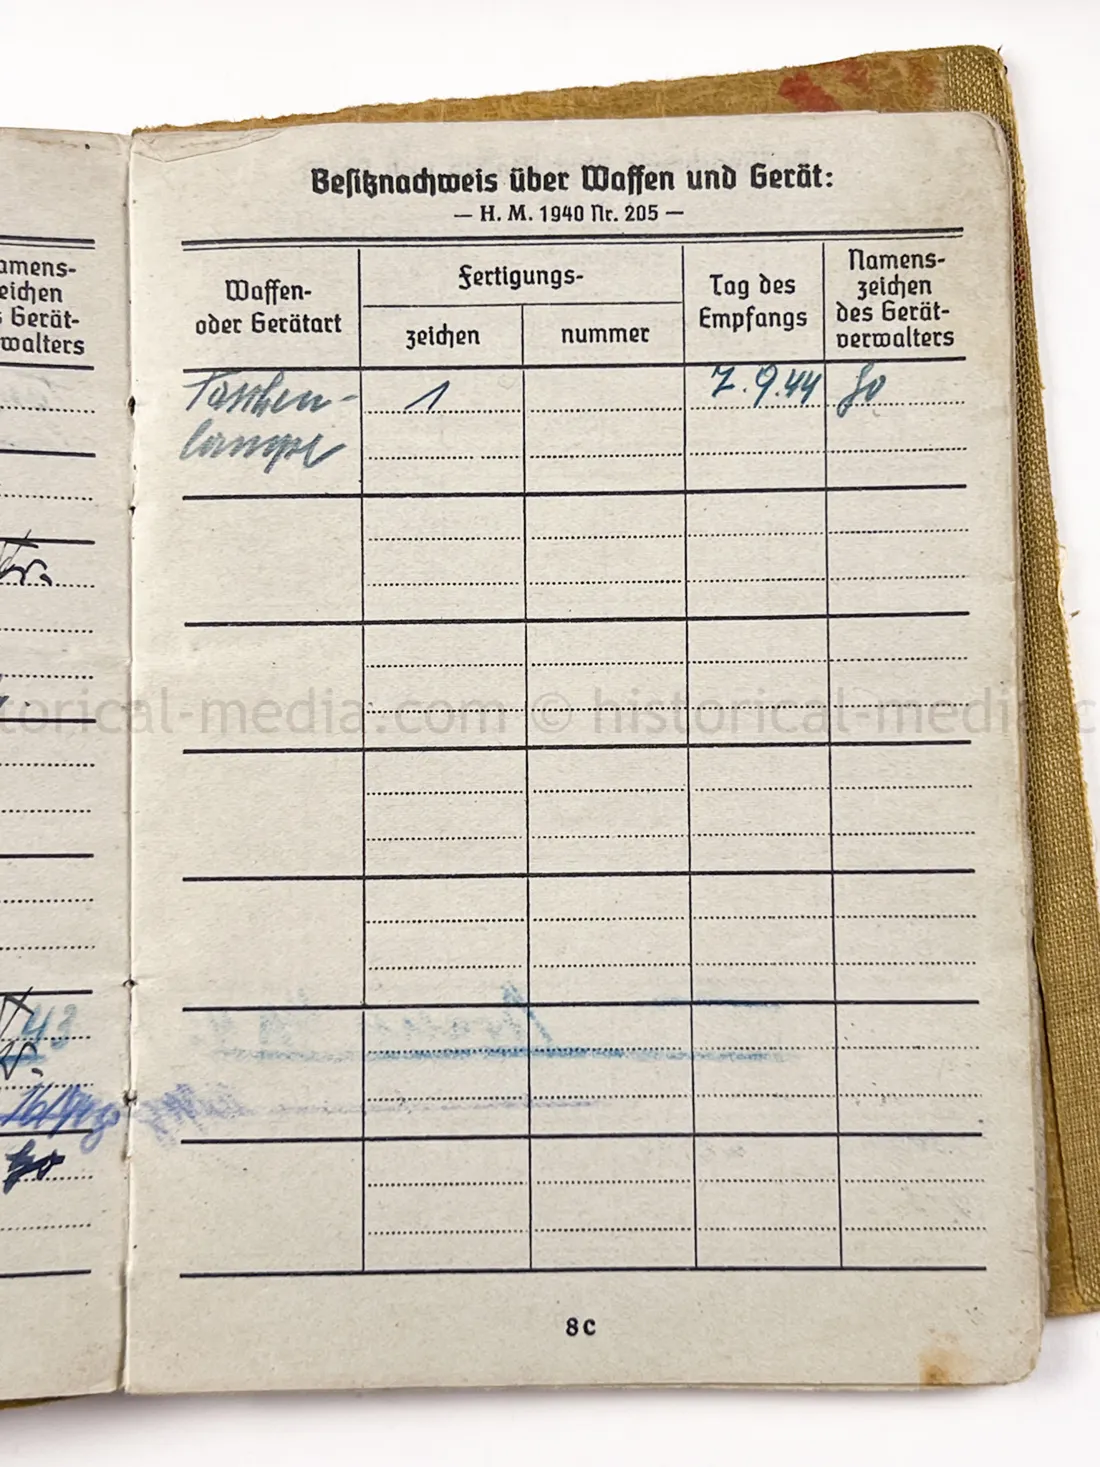 amens-
eichen
Gerät-
walters
43
Besitznachweis über Waffen und Gerät:
— H. M. 1940 Nr. 205 —
Waffen-
oder Gerätart
Fertigungs-
zeichen
nummer
Tag des
Empfangs
Namens-
zeichen
des Gerät-
verwalters
Taschen- 1 7.9.44
lampe
torical-media.com © historical-media.c
8c